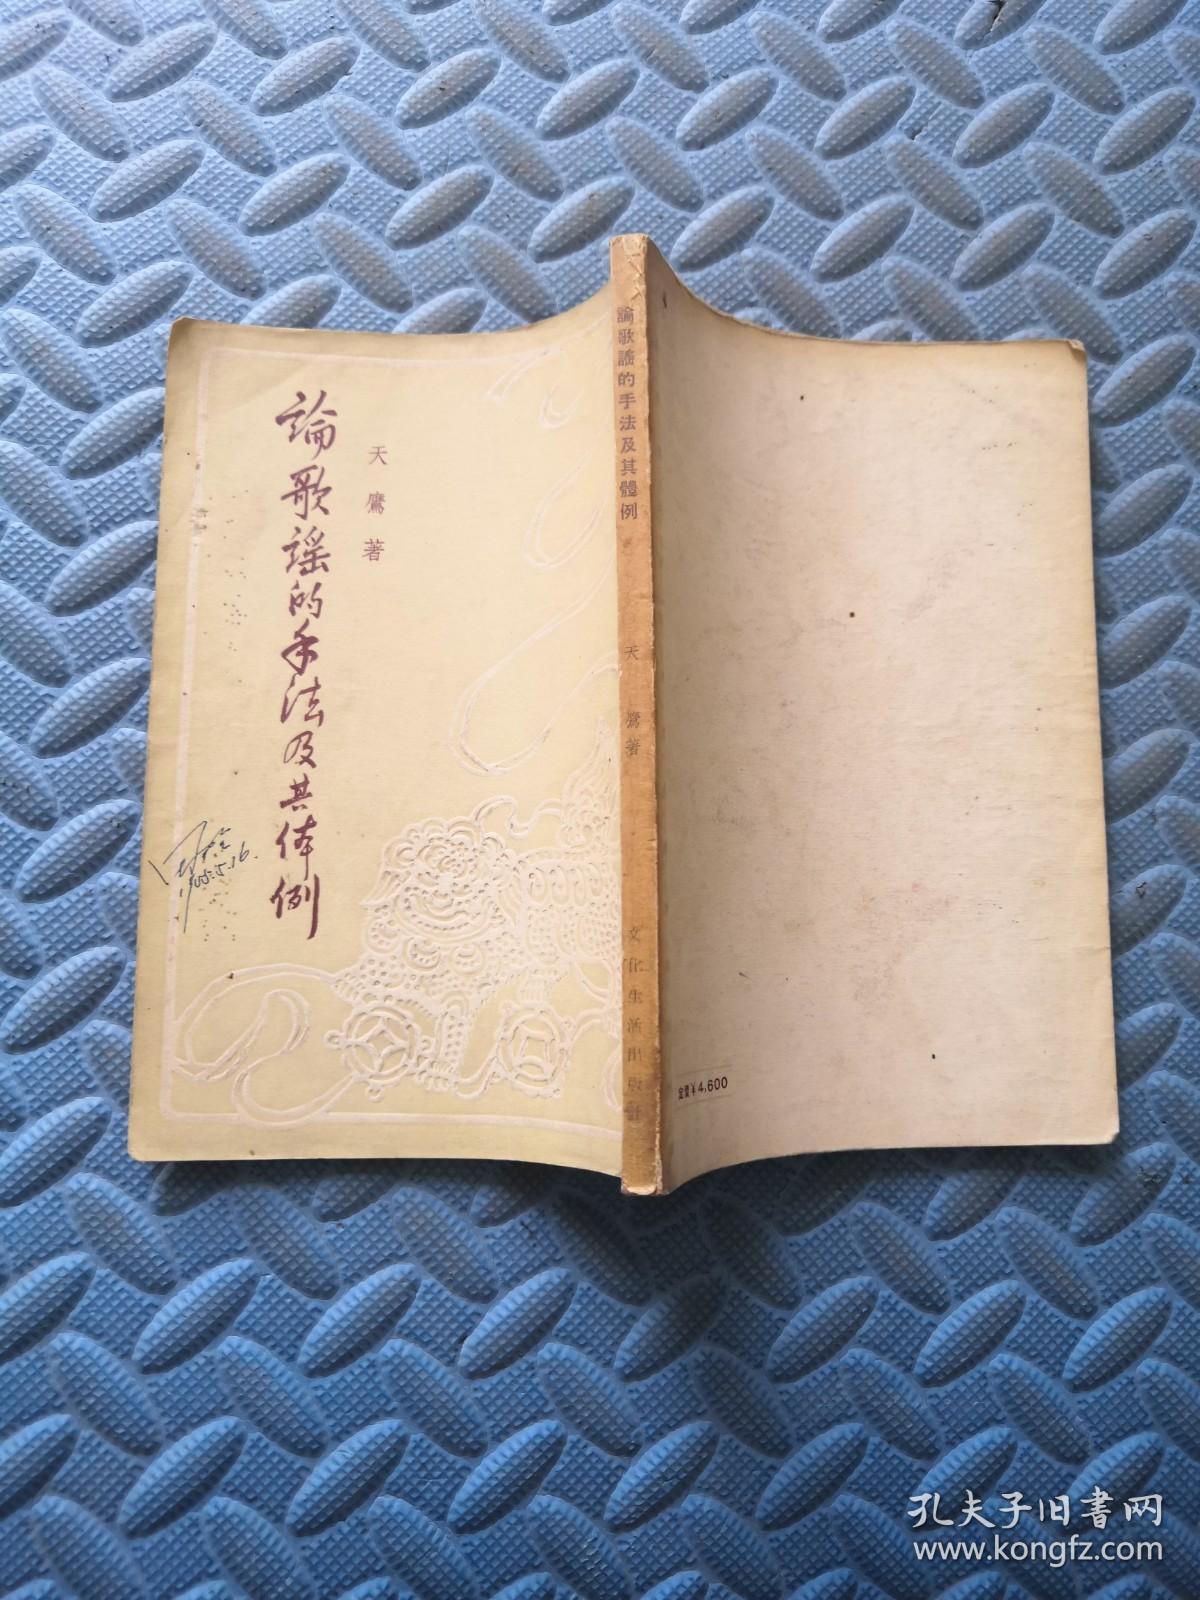 論歌謡的手法及其体例
天鷹著
55.5.16.
論歌謠的手法及其體例
天鷹著
文化生活出版社
定價¥4,600
孔夫子旧書网
www.kongfz.com